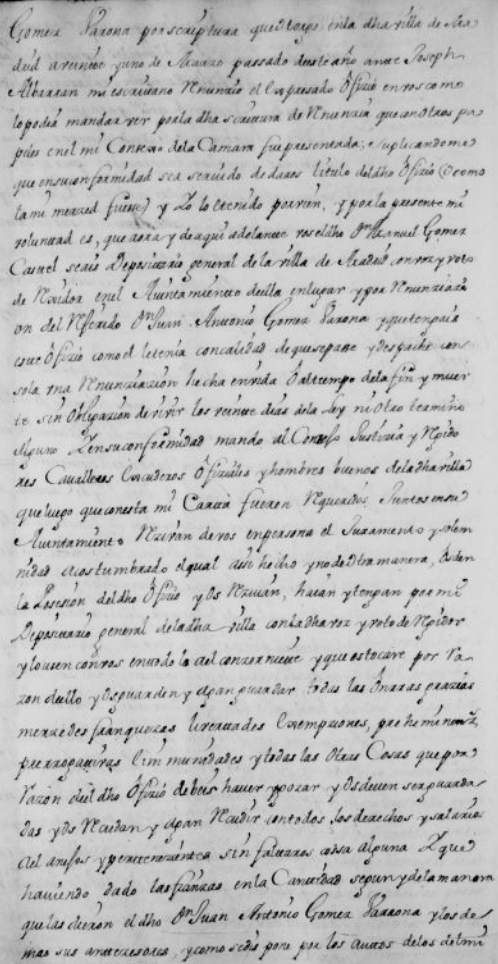 Gomez Barona por scriptura que otorgo en la dha villa de Ma
drid a veinte y uno de Marzo passado deste año ante Joseph
Albarran mi escrivano Renunzio el expresado Ofizio en vos como
lo podia mandar ver por la dha scritura de Renunzia que con otros pa
peles en el mi Consexo de la Camara fue presentada, suplicandome
que en su conformidad sea servido de daros titulo del dho Ofizio o como
la mi merced fuese, y Yo lo he tenido por vien, y por la presente mi
voluntad es, que aora y de aqui adelante vos el dho Dn Manuel Gomez
seais Depositario general de la villa de Madrid con voz y voto
de Rexidor en el Aiuntamiento de ella en lugar y por Renunziazi
on del Referido Dn Juan Antonio Gomez Barona y que tengais
este Ofizio como el le tenia con calidad de que se pase y despache con
sola una Renunziazion hecha en vida o al tiempo de la fin y muer
te sin obligazion de vivir los veinte dias de la Ley ni otro termino
alguno Y en su conformidad mando al Conzejo Justizia y Rexido
res Cavalleros Escuderos Ofiziales y hombres buenos de la dha villa
que luego que con esta mi Carta fueren Requeridos Juntos en su
Aiuntamiento Rezivan de vos en persona el Juramento y solem
nidad acostumbrado el qual assi hecho y no de otra manera, os den
la Posesion del dho Ofizio y os Rezivan, haian y tengan por mi
Depositario general de la dha villa con la dha voz y voto de Rexidor
y lo usen con vos en todo lo a el conzerniente y que os tocare por Ra
zon de ello y os guarden y agan guardar todas las onrras grazias
merzedes franquezas livertades exempziones, preheminenzias
prerrogativas e inmunidades y todas las otras Cosas que por
Razon del dho Ofizio debeis haver y gozar y os deven ser guarda
das y os Recudan y agan Recudir con todos los derechos y salarios
a el anejos y pertenecientes sin faltaros cossa alguna Y que
haviendo dado las fianzas en la Cantidad segun y de la manera
que las dieron el dho Dn Juan Antonio Gomez Barrona y los de
mas sus antezesores, y como se dispone por los autos de los del mi